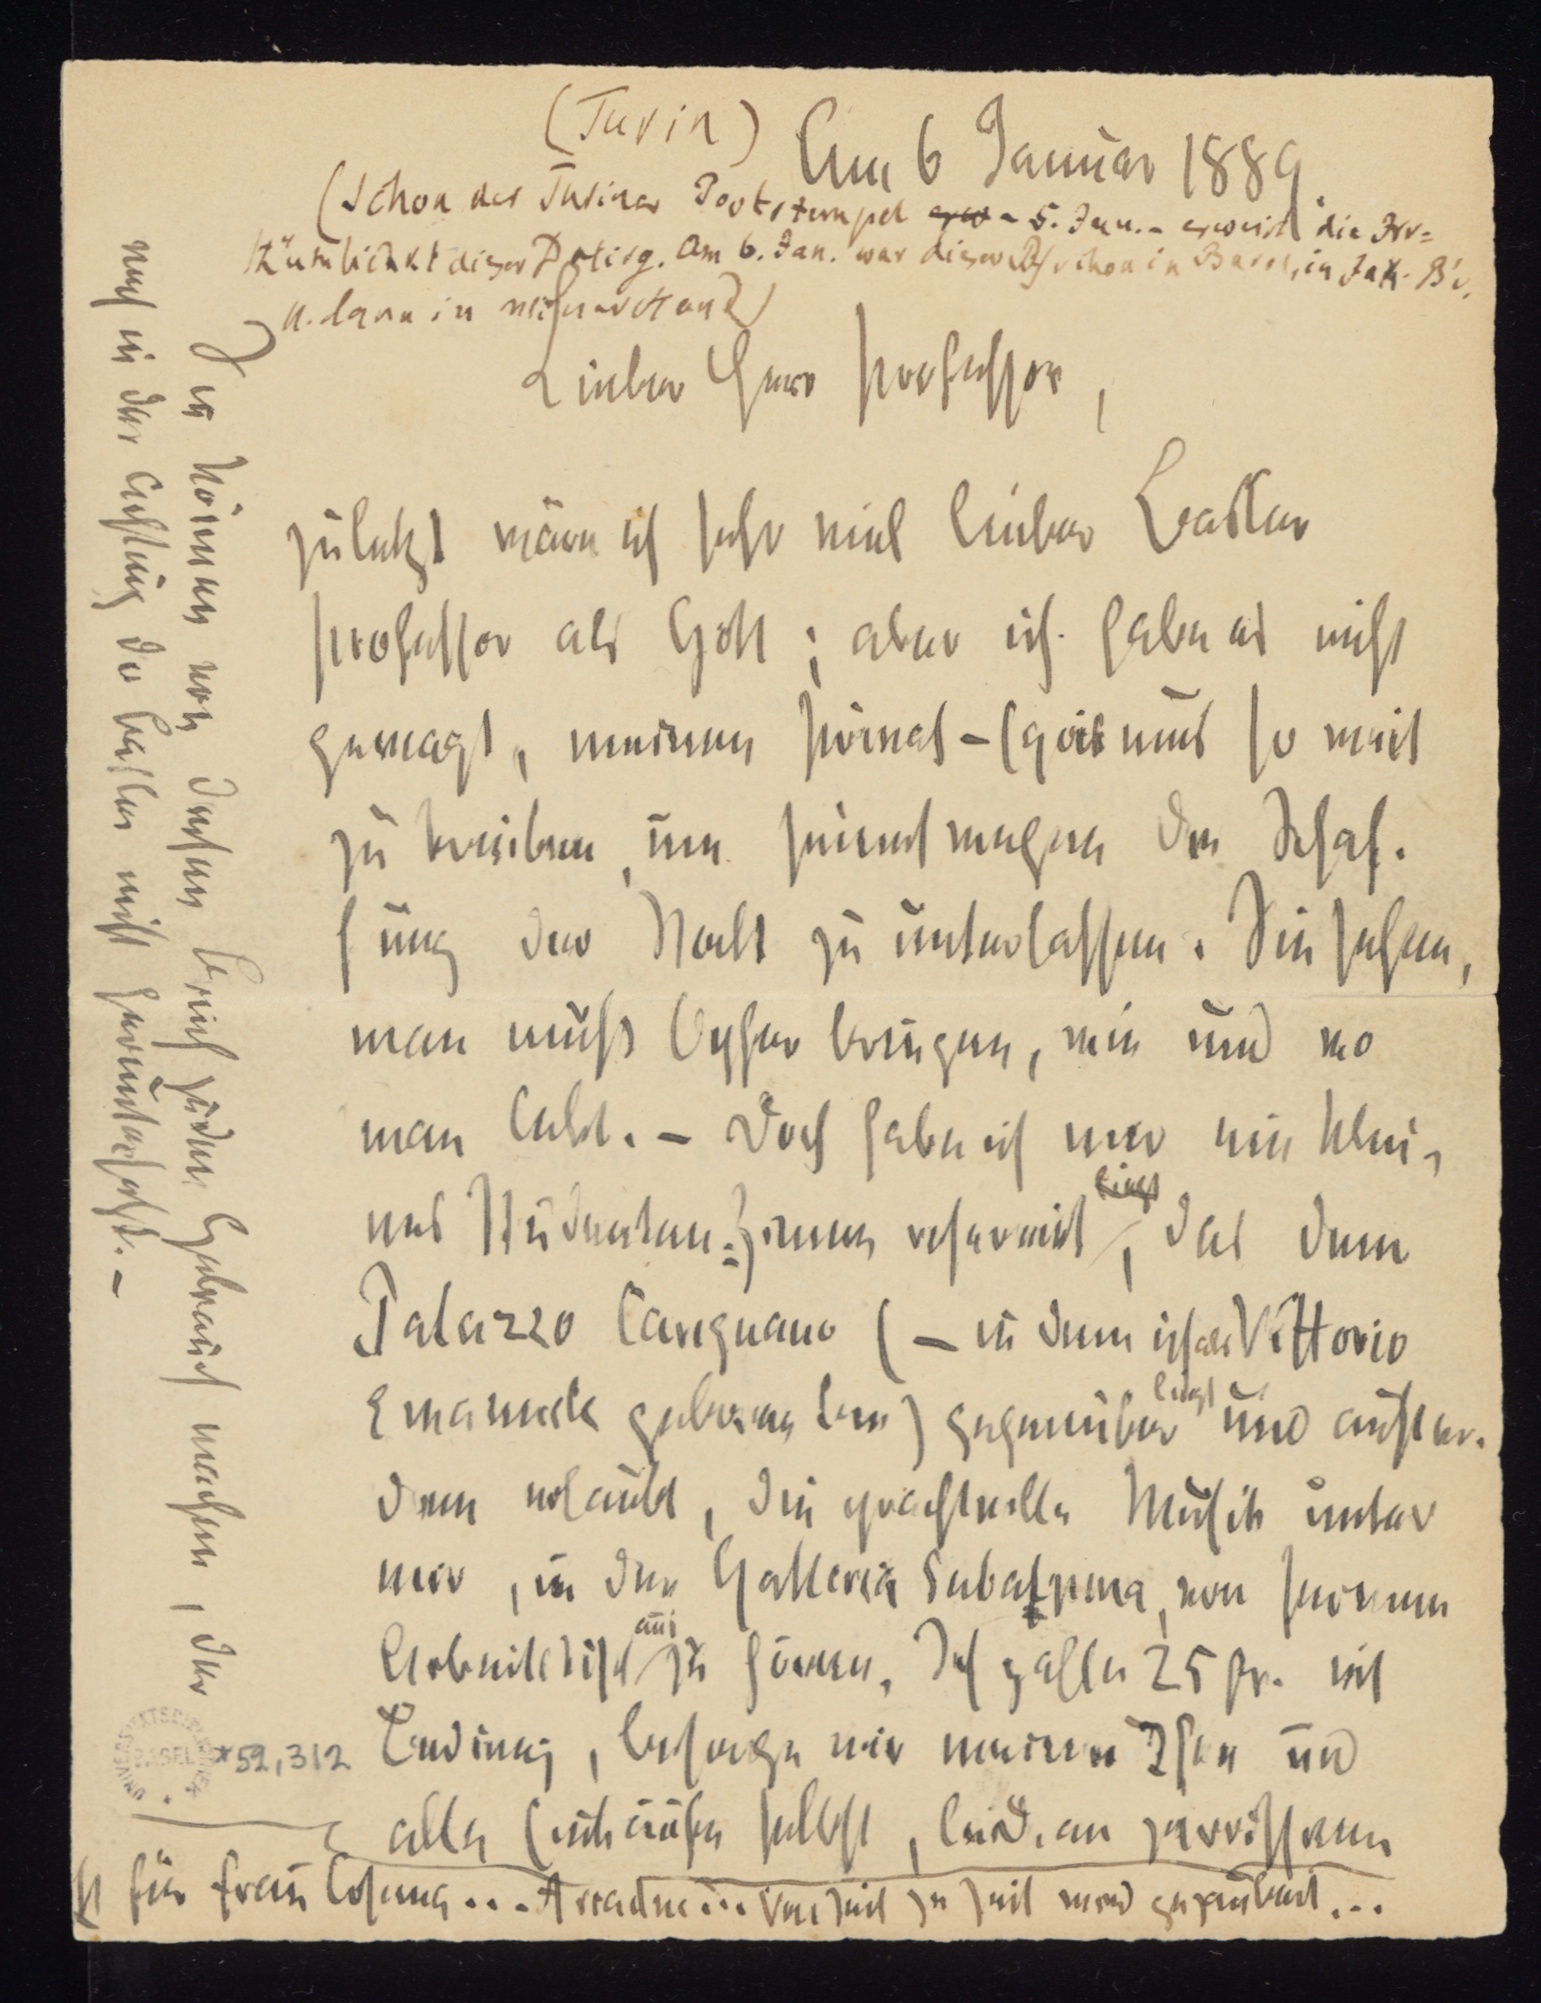 (Turin)
Am 6 Januar 1889.
(Schon der Turiner Poststempel - 5. Jan. - erweist die Irr=
thümlichkt dieser Datirg. Am 6. Jan. war dieser Bf schon in Basel, in Jak. B's.
u. dann in meiner Hand)
Lieber Herr Professor,
zuletzt wäre ich sehr viel lieber Basler
Professor als Gott; aber ich habe es nicht
gewagt, meinen Privat-Egoismus so weit
zu treiben, um seinetwegen die Schaf-
fung der Welt zu unterlassen. Sie sehen,
man muß Opfer bringen, wie und wo
man lebt. – Doch habe ich mir ein klei-
nes Studenten-Zimmer reservirt, das dem
Palazzo Carignano (– in dem ich als Vittorio
Emanuele geboren bin) gegenüber liegt und außer-
dem erlaubt, die prachtvolle Musik unter
mir, in der Galleria Subalpina, von seinem
Arbeitstisch aus zu hören. Ich zahle 25 fr. mit
Bedienung, besorge mir meinen Thee und
alle Einkäufe selbst, leide an zerrissenen
Sie können von diesem Brief jeden Gebrauch machen, der
mich in der Achtung der Basler nicht heruntersetzt. –
UNIVERSITÄTSBIBLIOTHEK BASEL
*52,312
für Frau Cosima... Ariadne... Von Zeit zu Zeit wird gezaubert...